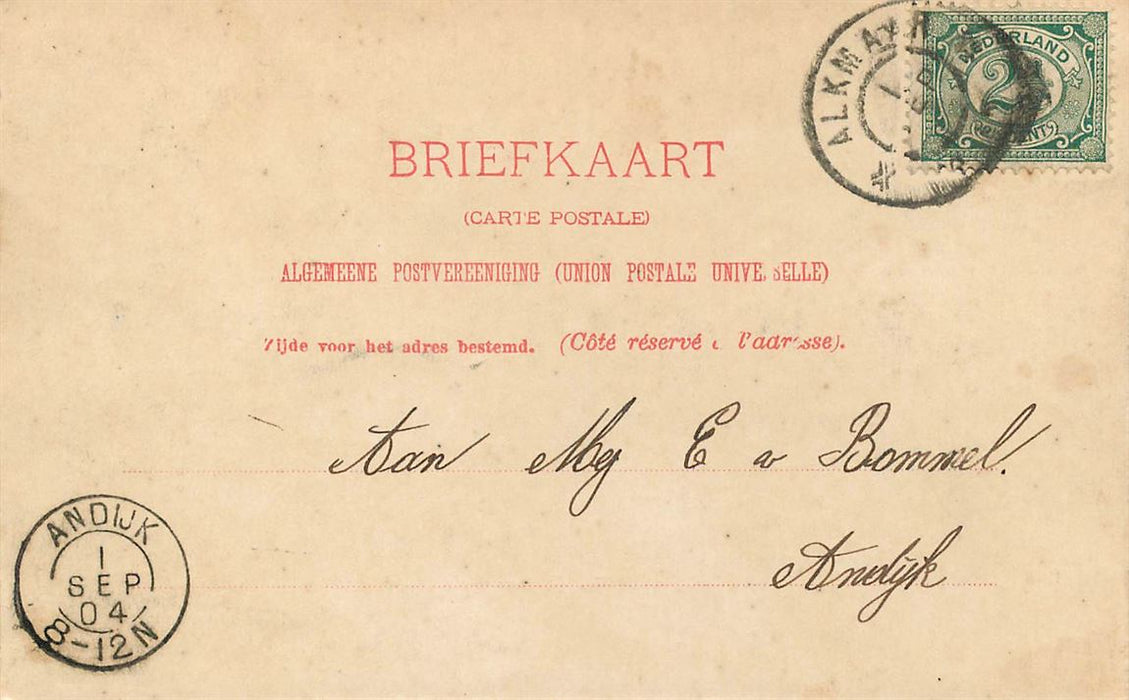 ALKMAAR
NEDERLAND
2½
CENT
BRIEFKAART
(CARTE POSTALE)
ALGEMEENE POSTVEREENIGING (UNION POSTALE UNIVERSELLE)
Zijde voor het adres bestemd. (Côté réservé à l'adresse).
Aan Mej E v Bommel.
Andijk
ANDIJK
1
SEP
04
8-12N